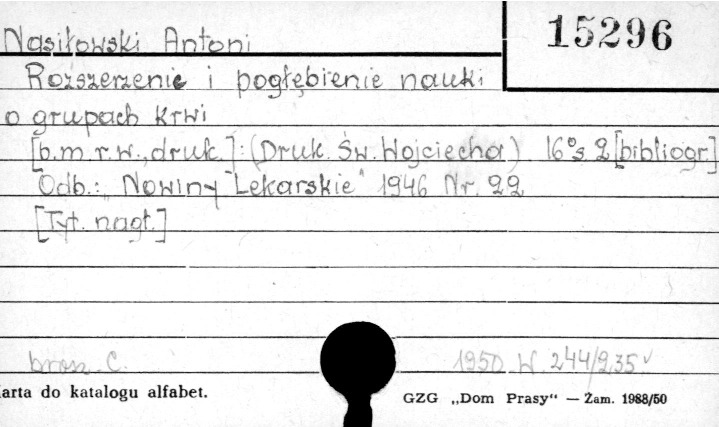 15296
Nasiłowski Antoni
Rozszerzenie i pogłębienie nauki
o grupach krwi
[b.m.r.w., druk.]: (Druk. Św. Wojciecha) 16° s. 2 [bibliogr.]
Odb.: „Nowiny Lekarskie" 1946 Nr. 22
[Tyt. nagł.]
brosz. C. 1950 W. 244/235
Karta do katalogu alfabet.
GZG „Dom Prasy“ — Zam. 1988/50